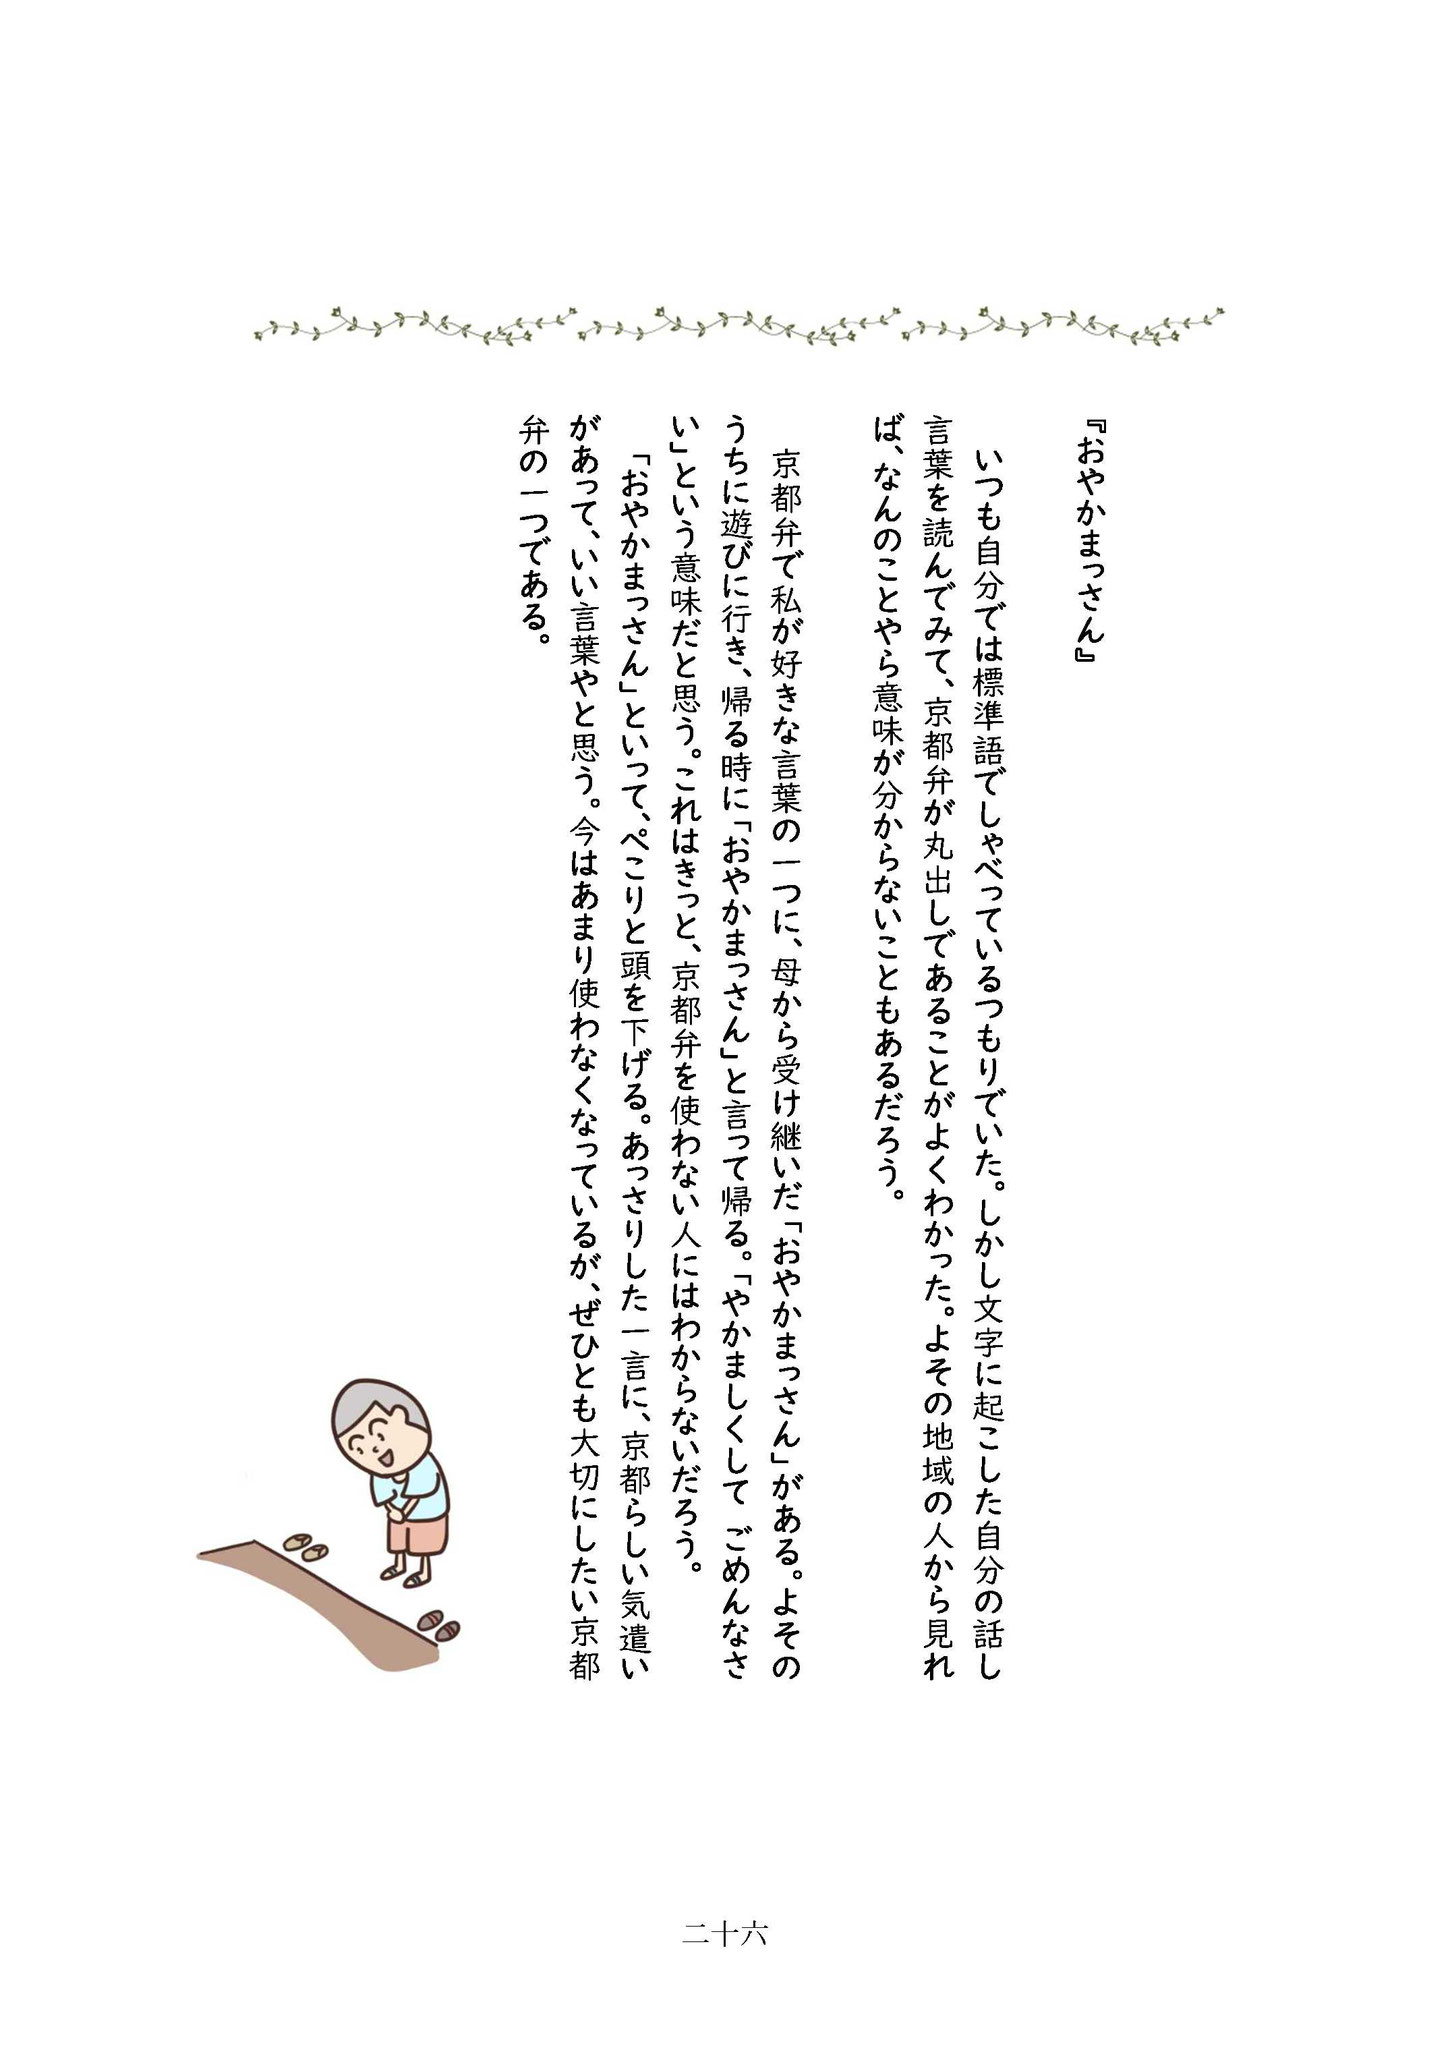 『おやかまっさん』
いつも自分では標準語でしゃべっているつもりでいた。しかし文字に起こした自分の話し
言葉を読んでみて、京都弁が丸出しであることがよくわかった。よその地域の人から見れ
ば、なんのことやら意味が分からないこともあるだろう。
京都弁で私が好きな言葉の一つに、母から受け継いだ「おやかまっさん」がある。よその
うちに遊びに行き、帰る時に「おやかまっさん」と言って帰る。「やかましくして ごめんなさ
い」という意味だと思う。これはきっと、京都弁を使わない人にはわからないだろう。
「おやかまっさん」といって、ぺこりと頭を下げる。あっさりした一言に、京都らしい気遣い
があって、いい言葉やと思う。今はあまり使わなくなっているが、ぜひとも大切にしたい京都
弁の一つである。
二十六